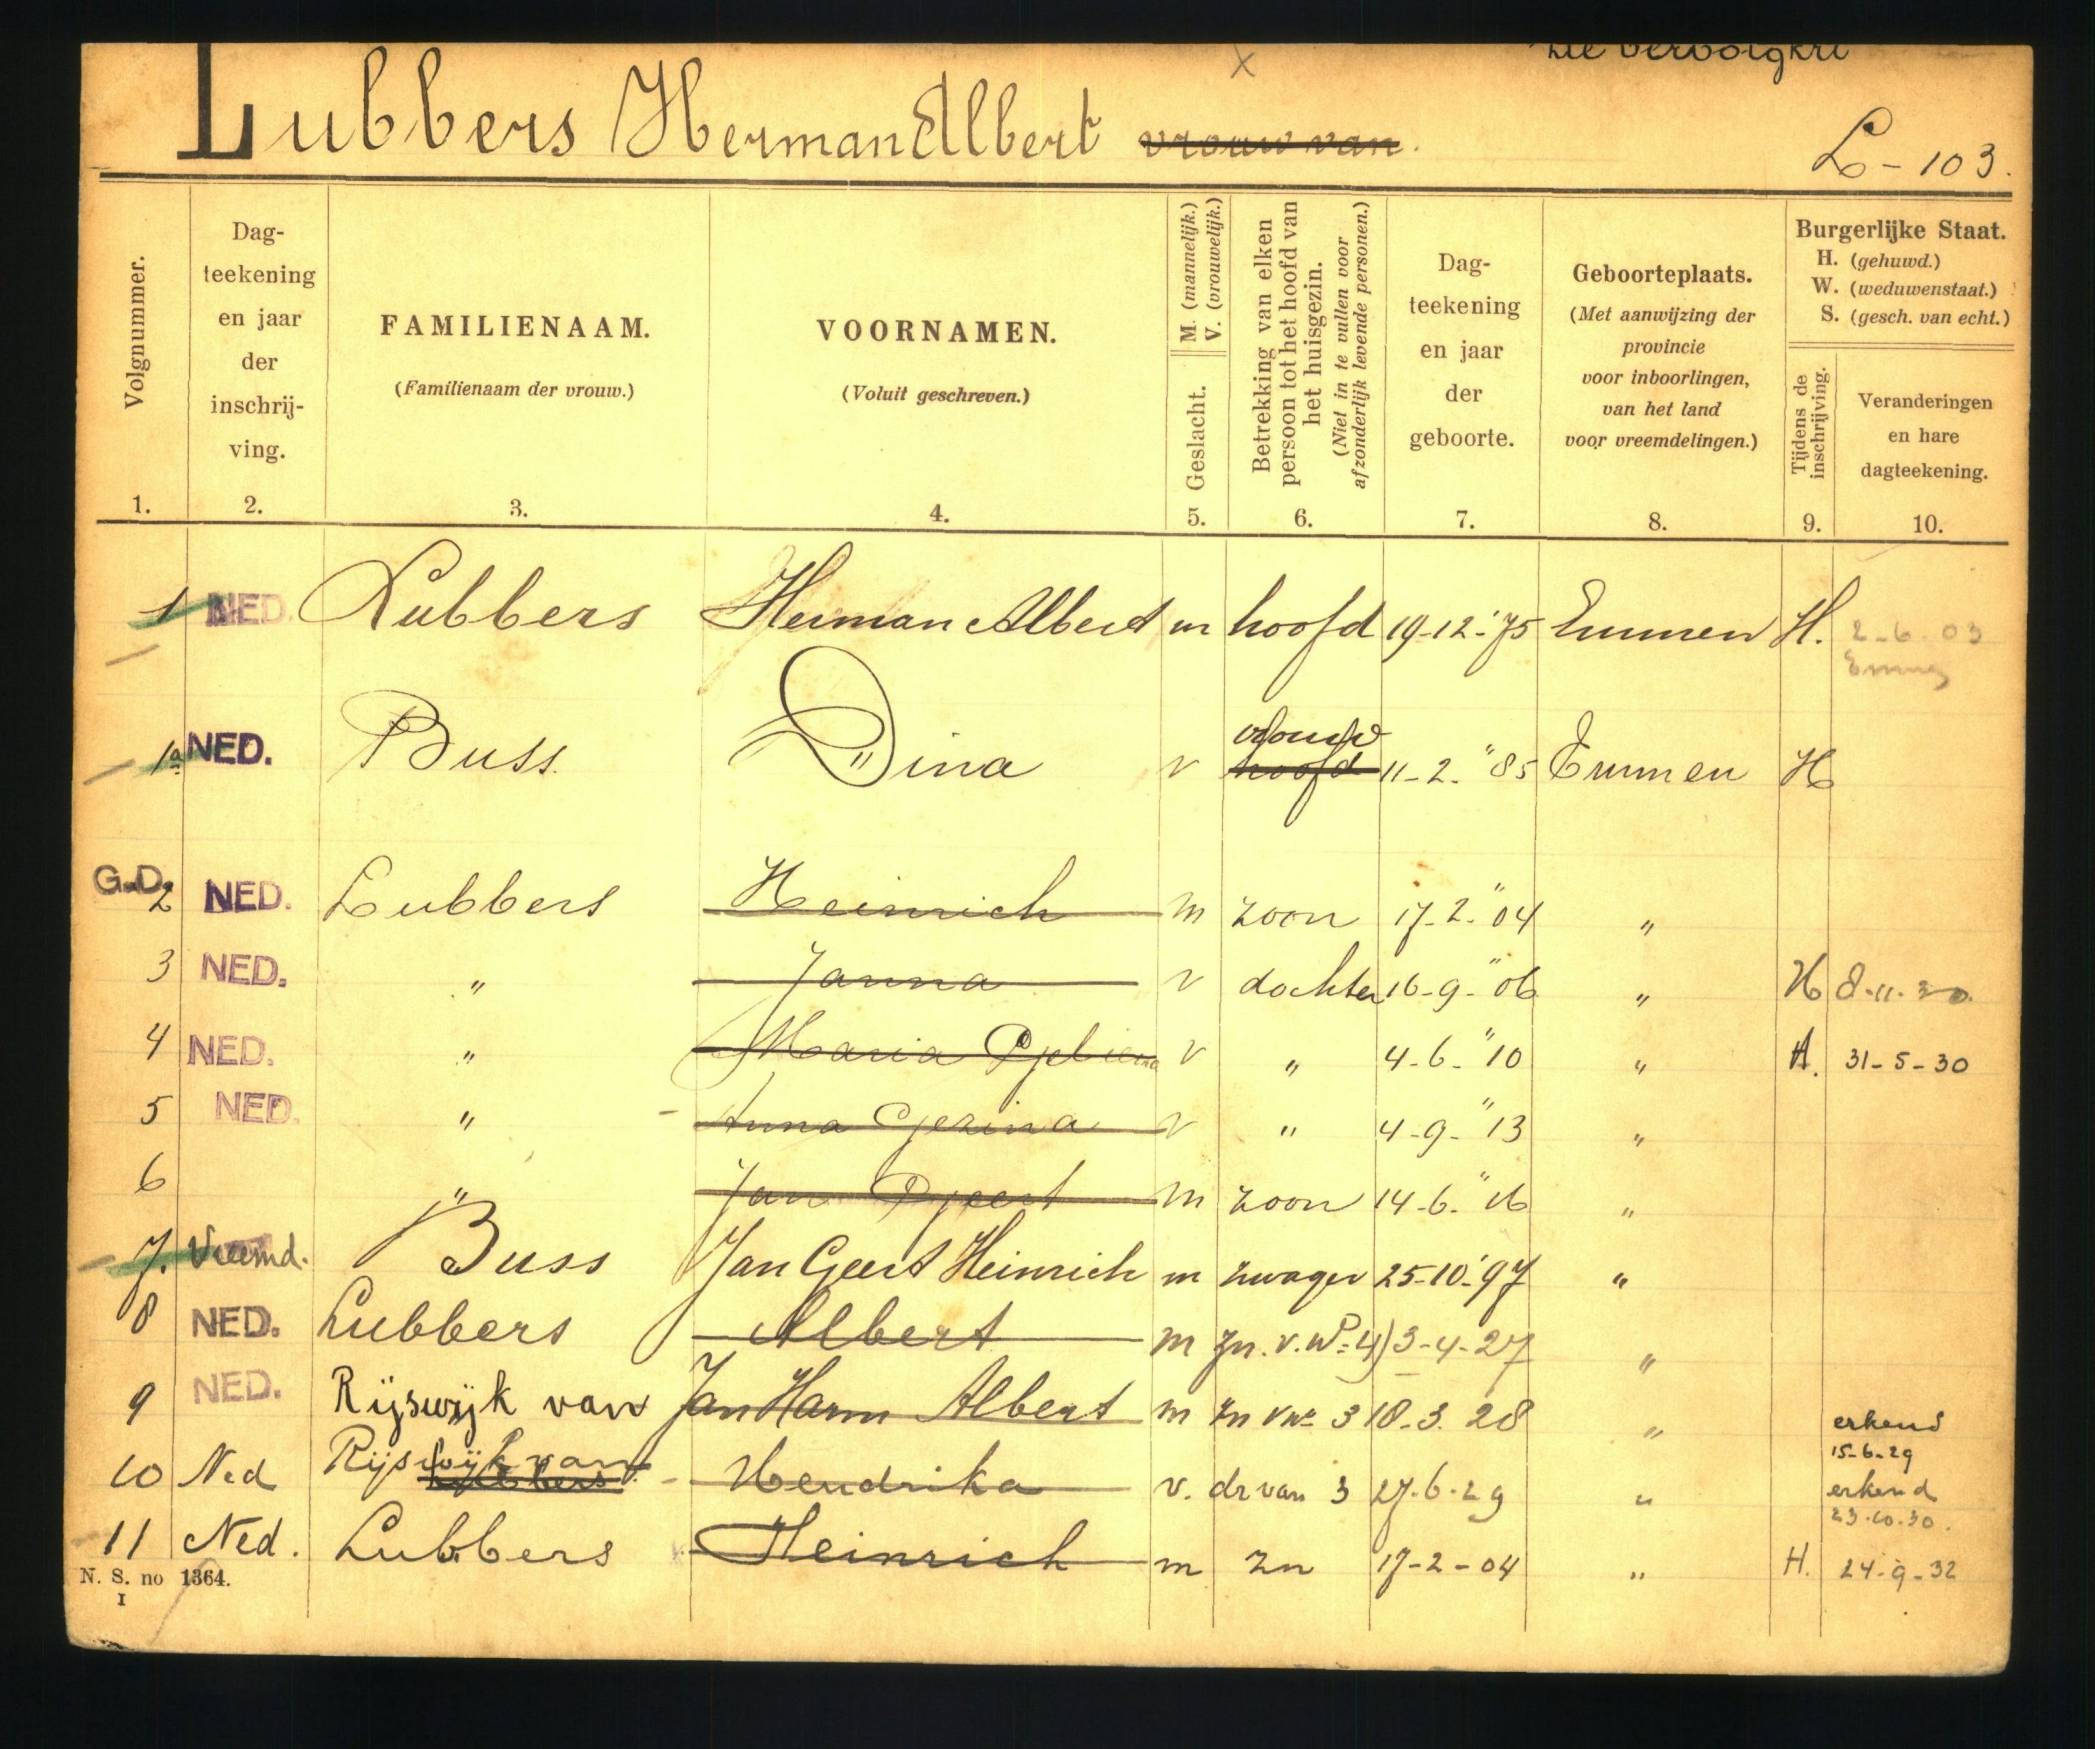 Lubbers Herman Albert vrouw van.
L - 103.
Volgnummer.
1.
Dag-
teekening
en jaar
der
inschrij-
ving.
2.
FAMILIENAAM.
(Familienaam der vrouw.)
3.
VOORNAMEN.
(Voluit geschreven.)
4.
Geslacht. M. (mannelijk.)
V. (vrouwelijk.)
5.
Betrekking van elken
persoon tot het hoofd van
het huisgezin.
(Niet in te vullen voor
afzonderlijk levende personen.)
6.
Dag-
teekening
en jaar
der
geboorte.
7.
Geboorteplaats.
(Met aanwijzing der
provincie
voor inboorlingen,
van het land
voor vreemdelingen.)
8.
Burgerlijke Staat.
H. (gehuwd.)
W. (weduwenstaat.)
S. (gesch. van echt.)
Tijdens de
inschrijving.
9.
Veranderingen
en hare
dagteekening.
10.
1 NED. Lubbers Herman Albert m hoofd 19-12-'75 Emmen H. 2-6-03
vrouw
1a NED. Buss Dina v hoofd 11-2-"85 Emmen H
G.D.
2 NED. Lubbers Heinrich m zoon 17-2-"04 "
3 NED. " Janna v dochter 16-9-"06 " H 8-11-30.
4 NED. " Maria v " 4-6-"10 " H. 31-5-30
5 NED. " Anna Gezina v " 4-9-"13 "
6 " Jan Geert m zoon 14-6-"16 "
7. Vreemd. Buss Jan Geert Heinrich m zwager 25-10-'97 "
8 NED. Lubbers Albert m zn. v. No 4) 3-4-27 "
9 NED. Rijswijk van Jan Harm Albert m zn v no 3 18-3-28 " erkend
15-6-29
10 Ned Rijswijk van Lubbers Hendrika v. dr van 3 27-6-29 " erkend
23-10-30.
11 Ned. Lubbers Heinrich m zn 17-2-04 " H. 24-9-32
N. S. no 1364.
I